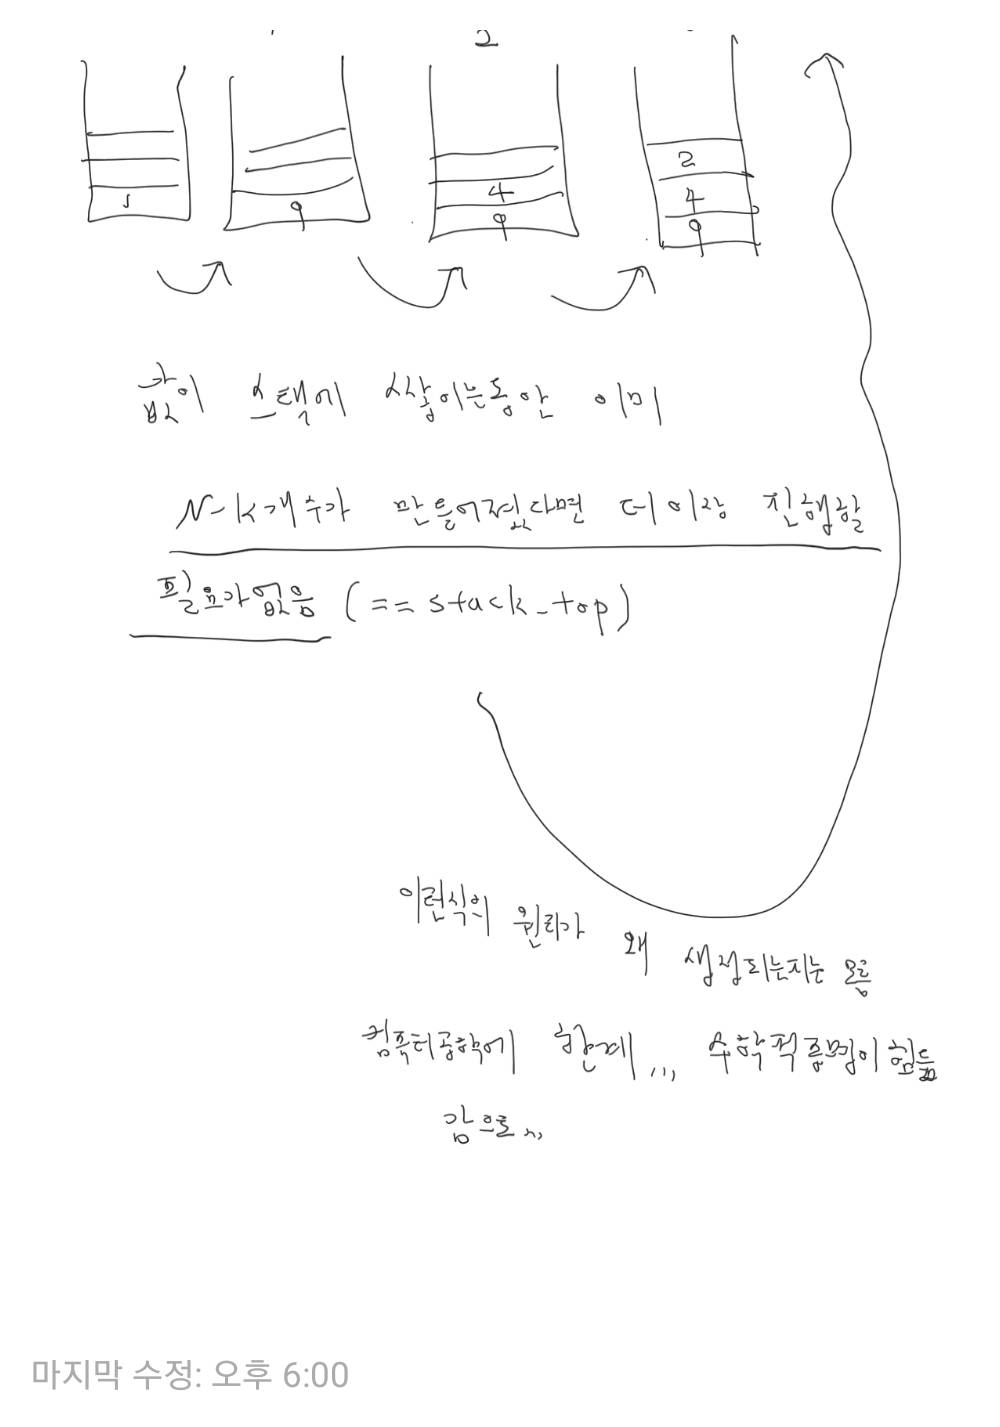 2
1 9 4 9 2 4 9
값이 스택에 쌓이는동안 이미
N-K개수가 만들어졌다면 더이상 진행할
필요가없음 (== stack_top)
이런식의 원리가 왜 생성되는지는 모름
컴퓨터공학에 한계... 수학적증명이 힘듦
감으로...
마지막 수정: 오후 6:00